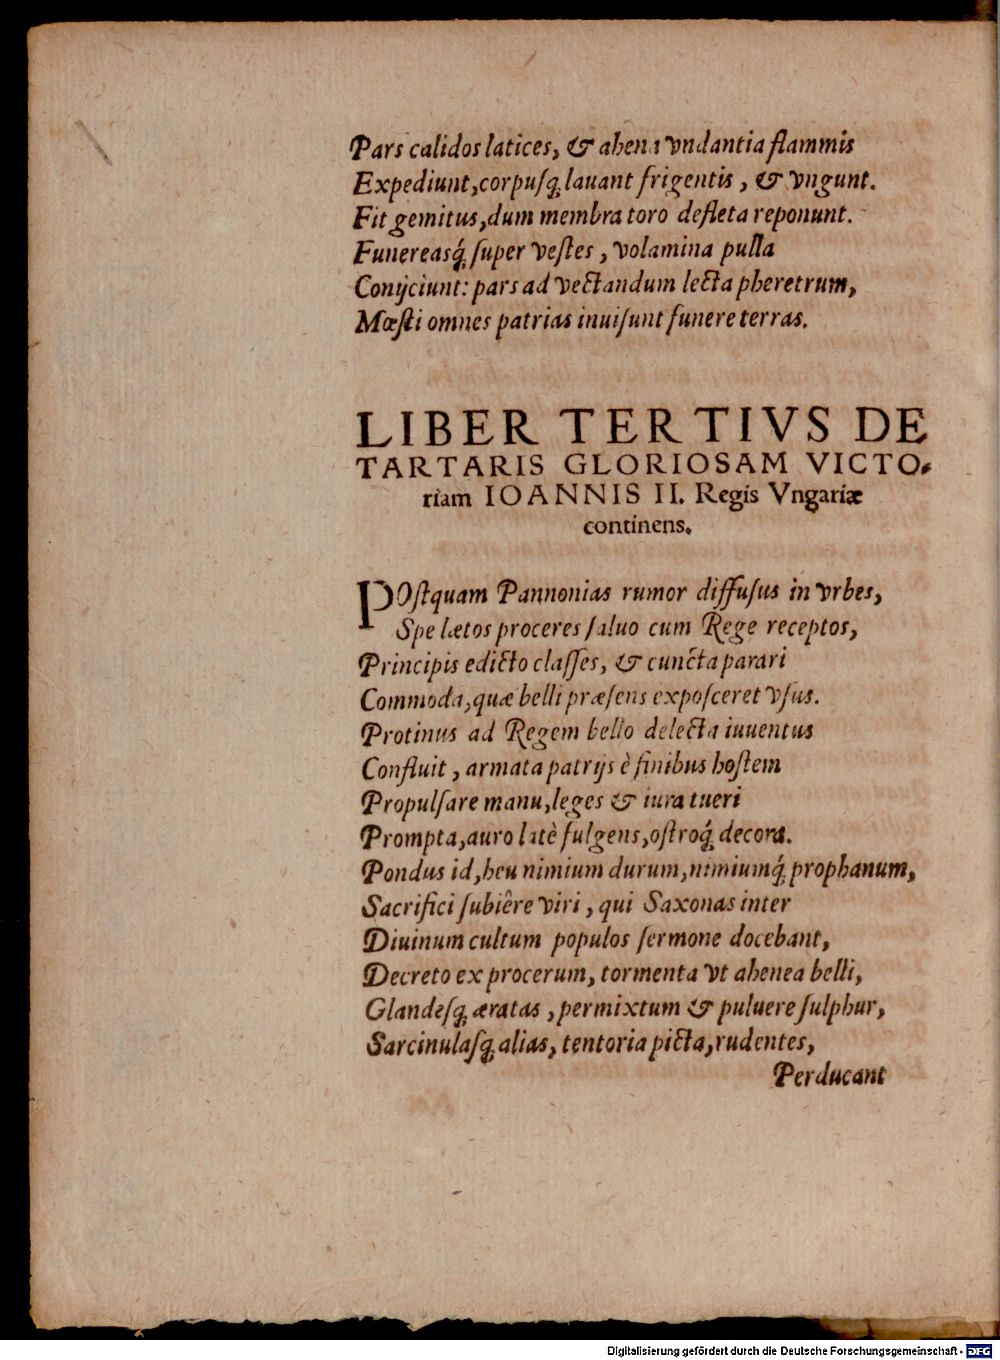 Pars calidos latices, & ahena vndantia flammis
Expediunt, corpuſq́; lauant frigentis, & vngunt.
Fit gemitus, dum membra toro defleta reponunt.
Funereasq́; ſuper veſtes, volamina pulla
Conijciunt: pars ad vectandum lecta pheretrum,
Mœſti omnes patrias inuiſunt funere terras.
LIBER TERTIVS DE
TARTARIS GLORIOSAM VICTO-
riam IOANNIS II. Regis Vngariæ
continens.
POſtquam Pannonias rumor diffuſus in vrbes,
Spe lætos proceres ſaluo cum Rege receptos,
Principis edicto claſſes, & cuncta parari
Commoda, quæ belli præſens expoſceret vſus.
Protinus ad Regem bello delecta iuuentus
Confluit, armata patrijs è finibus hoſtem
Propulſare manu, leges & iura tueri
Prompta, auro latè fulgens, oſtroq́; decora.
Pondus id, heu nimium durum, nimiumq́; prophanum,
Sacrifici ſubiêre viri, qui Saxonas inter
Diuinum cultum populos ſermone docebant,
Decreto ex procerum, tormenta vt ahenea belli,
Glandeſq́; æratas, permixtum & puluere ſulphur,
Sarcinulaſq́; alias, tentoria picta, rudentes,
Perducant
Digitalisierung gefördert durch die Deutsche Forschungsgemeinschaft - DFG